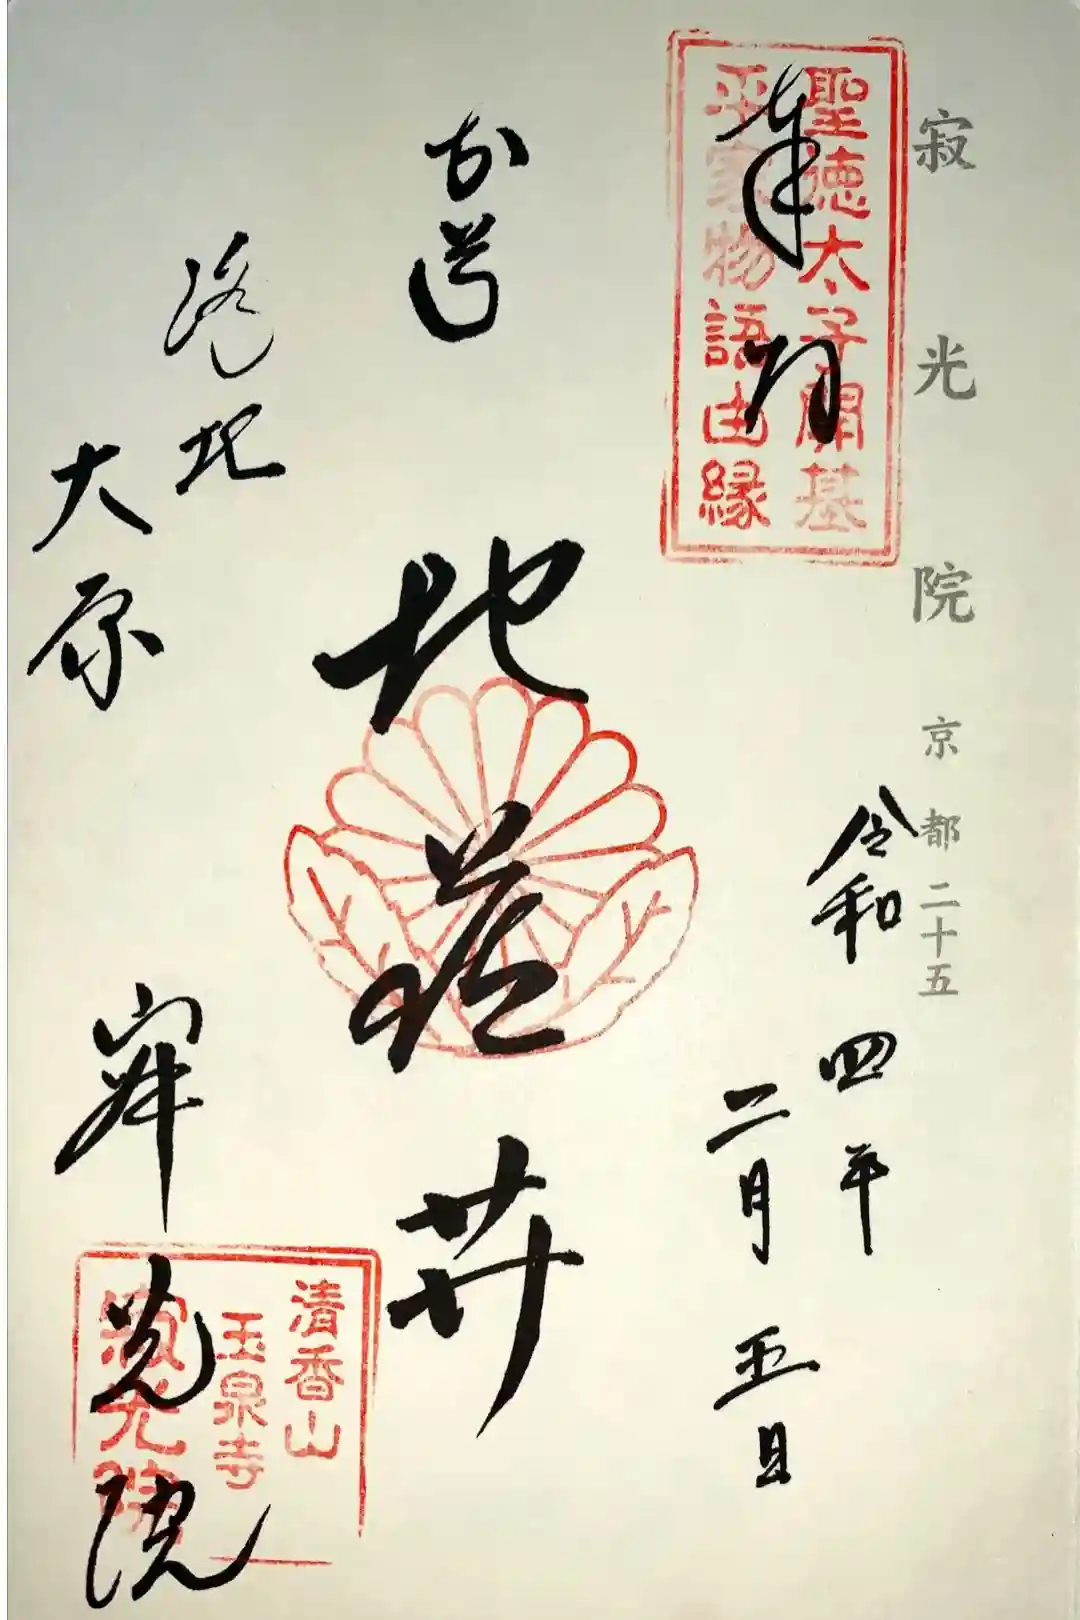 寂光院 京都二十五
聖徳太子開基
平家物語由縁
奉拝
令和四年
二月五日
地蔵菩
洛北
大原
寂光院
清香山
玉泉寺
寂光院